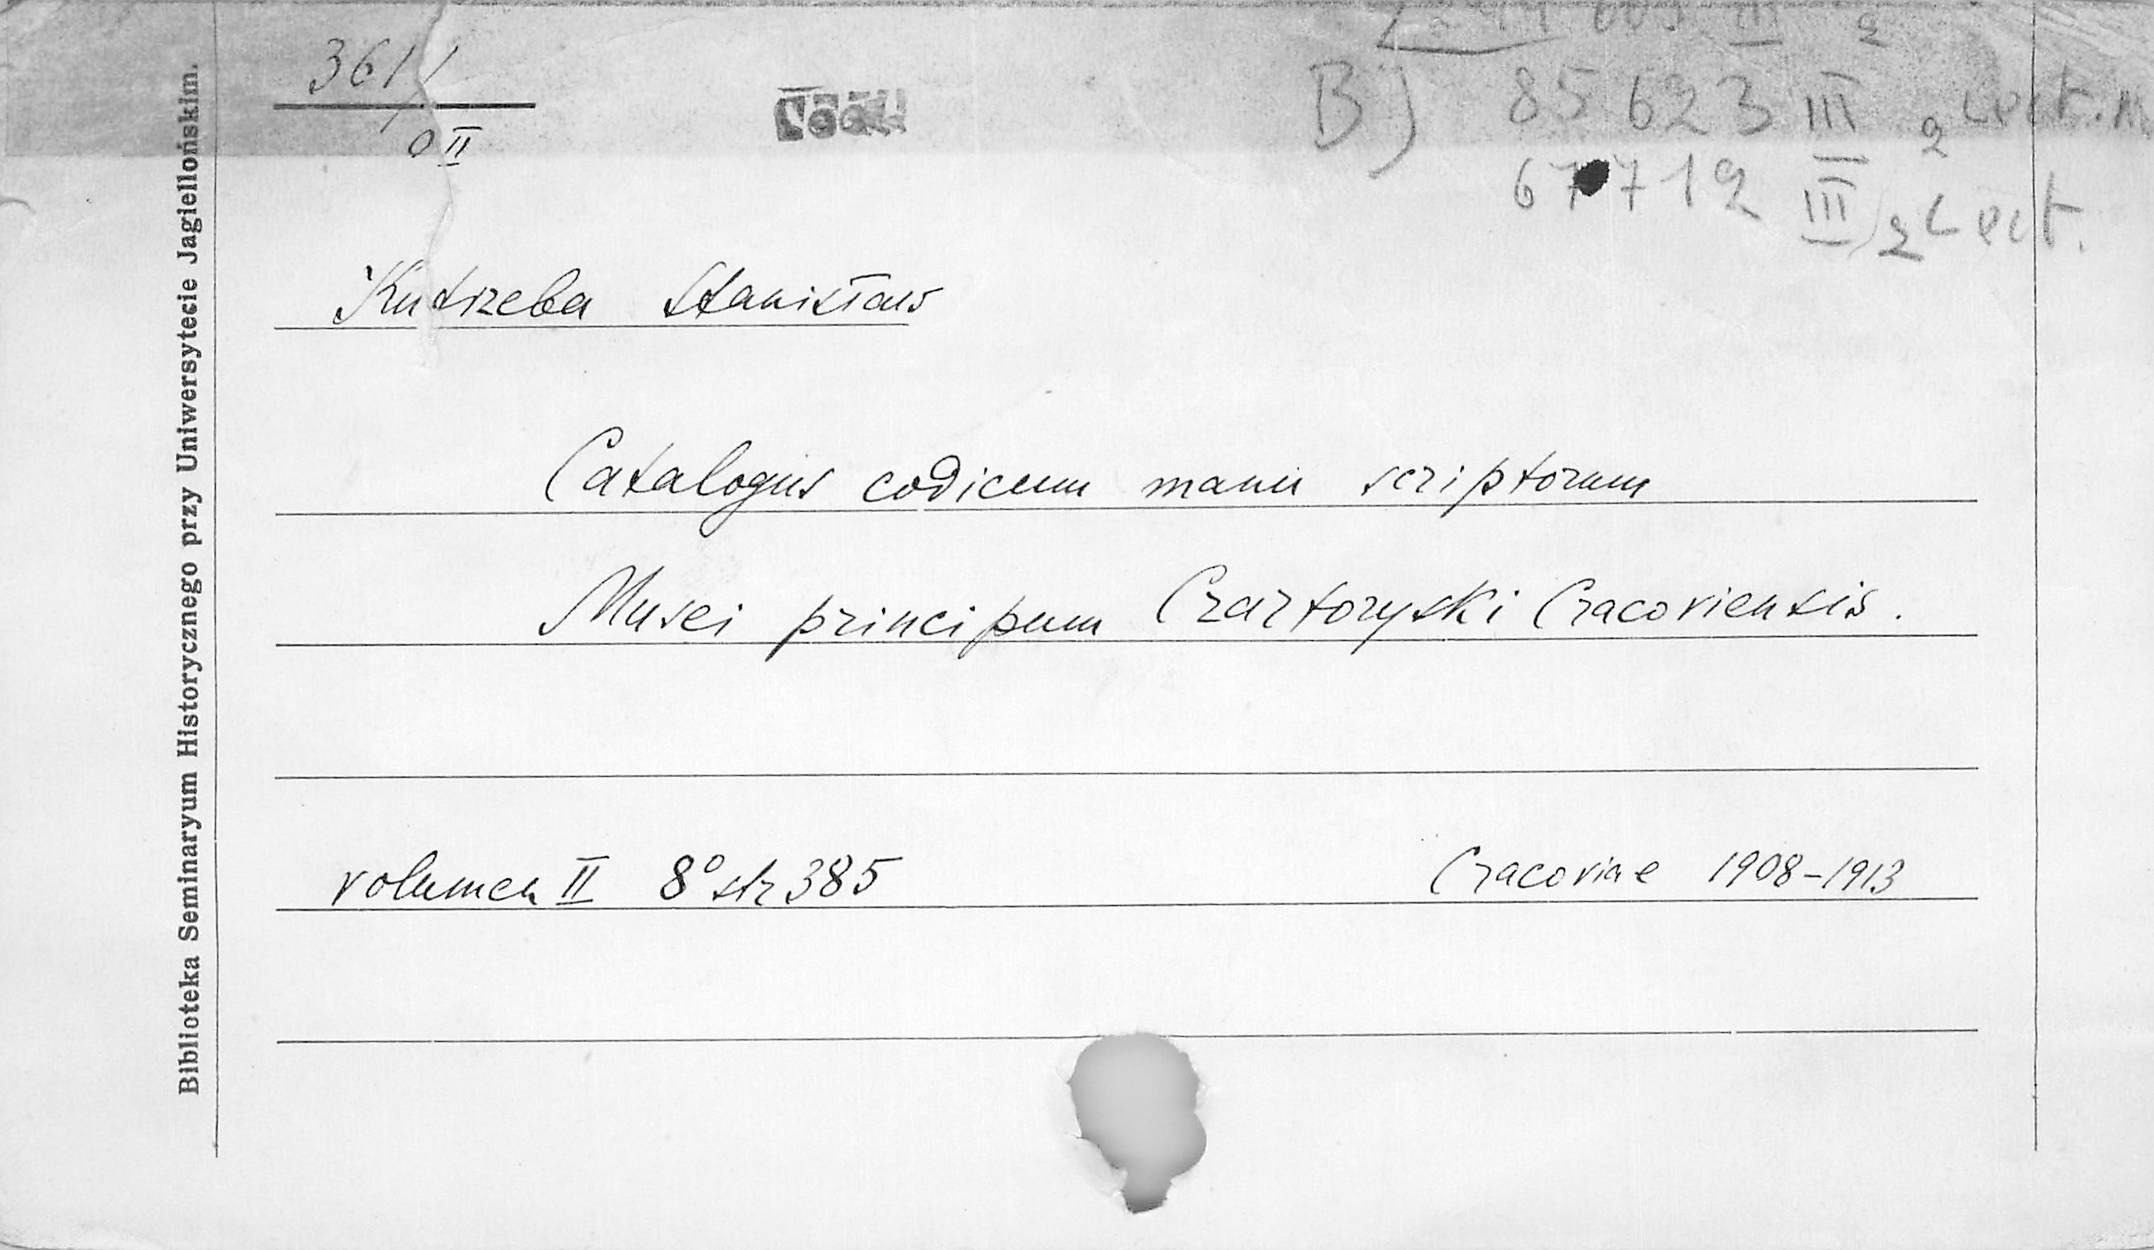 3611
0 II
BJ 85623 III 2 Lect.
67712 III 2 Lect.
Kutrzeba Stanisław
Catalogus codicum manu scriptorum
Musei principum Czartoryski Cracoviensis.
volumen II 8° str 385 Cracoviae 1908-1913
Biblioteka Seminaryum Historycznego przy Uniwersytecie Jagiellońskim.